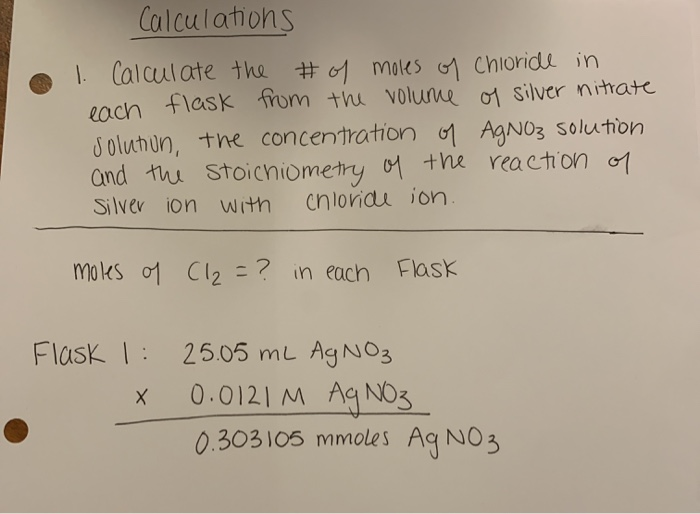 Calculations
1. Calculate the # of moles of chloride in
each flask from the volume of silver nitrate
solution, the concentration of AgNO3 solution
and the stoichiometry of the reaction of
silver ion with chloride ion.
moles of Cl2 = ? in each Flask
Flask 1: 25.05 mL AgNO3
x 0.0121 M AgNO3
0.303105 mmoles AgNO3